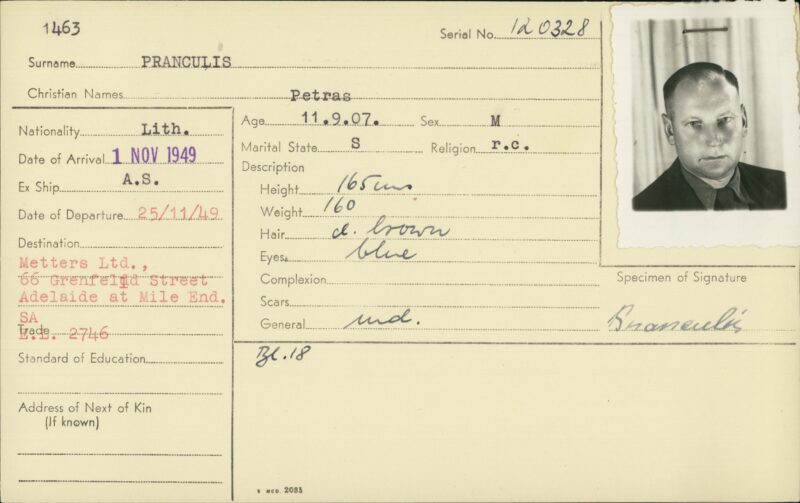 1463
Serial No. 120328
Surname PRANCULIS
Christian Names Petras
Nationality Lith.
Date of Arrival 1 NOV 1949
Ex Ship A.S.
Date of Departure 25/11/49
Destination
Metters Ltd.,
66 Grenfelld Street
Adelaide at Mile End.
SA
Trade E.L. 2746
Standard of Education
Address of Next of Kin
(If known)
Age 11.9.07. Sex M
Marital State S Religion r.c.
Description
Height 165 cms
Weight 160
Hair d. brown
Eyes blue
Complexion
Scars
General md.
Bl.18
Specimen of Signature
Pranculis
2085